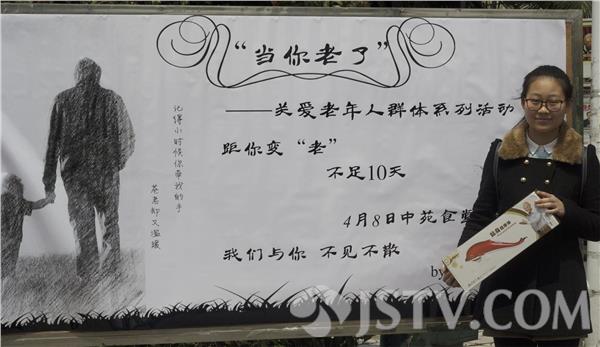 “当你老了”
——关爱老年人群体系列活动
距你变“老”
不足10天
4月8日中苑食堂
我们与你 不见不散
by
记得小时候你牵我的手
苍老却又温暖
JSTV.COM